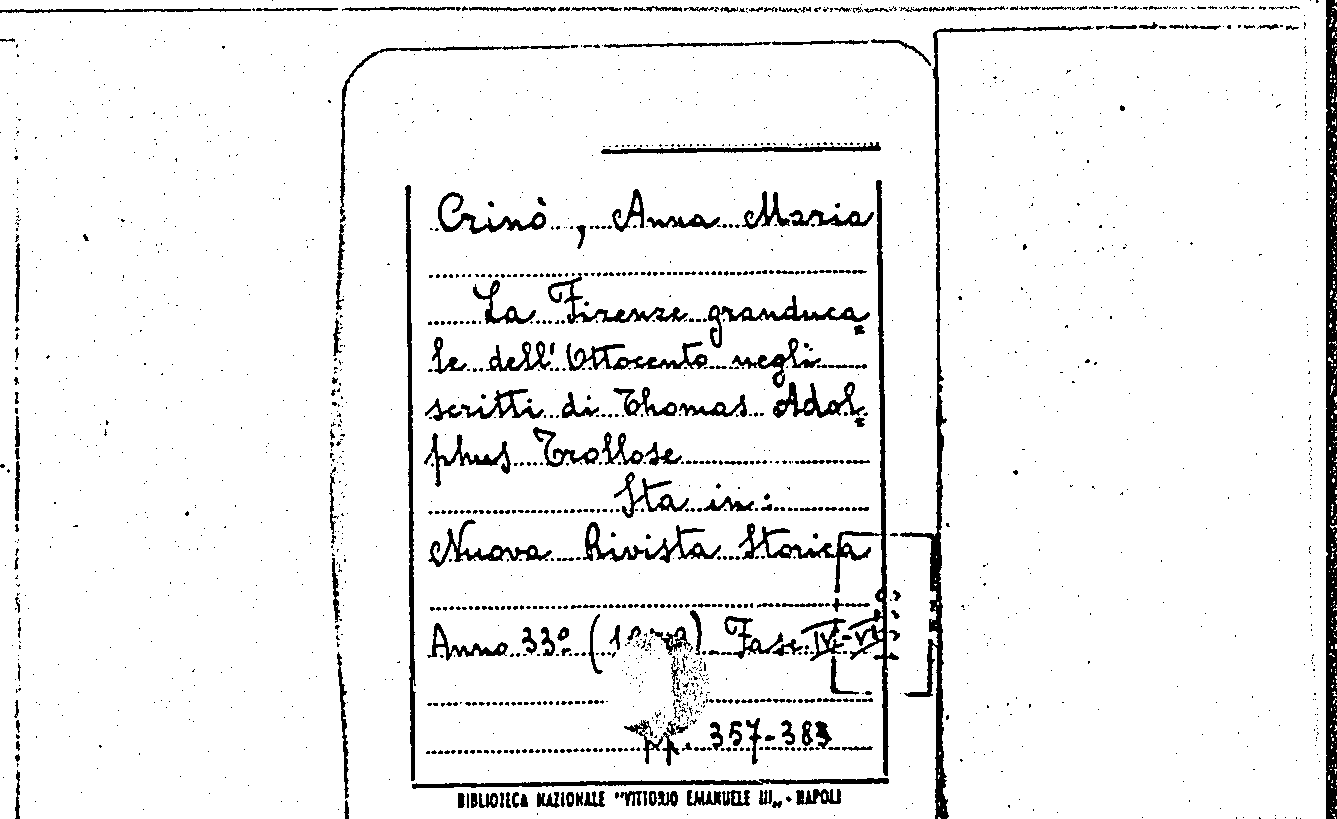 Crinò, Anna Maria
La Firenze granduca=
le dell'Ottocento negli
scritti di Thomas Adol=
phus Trollose
Sta in:
Nuova Rivista Storica
Anno 33º Fasc. IV-VI
pp. 357-383
BIBLIOTECA NAZIONALE "VITTORIO EMANUELE III„ - NAPOLI